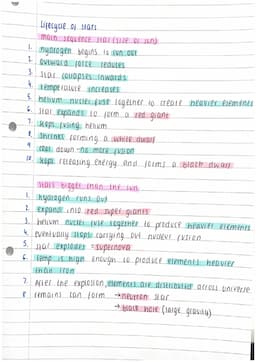 Lifecycle of stars
Main sequence star (size of sun)
1. Hydrogen begins to run out
2. outward force reduces
3. Star collapses inwards
4. Temperature increases
5. Helium nuclei fuse together to create heavier elements
6. Star expands to form a red giant
7. Stops fusing helium
8. Shrinks forming a white dwarf
9. cools down - no more fusion
10. stops releasing energy and forms a black dwarf
Stars bigger than the sun
1. hydrogen runs out
2. expand into red super giants
3. helium nuclei fuse together to produce heavier elements
4. eventually stops carrying out nuclear fusion
5. star explodes = supernova
6. Temp is high enough to produce elements heavier
than iron
7. After the explosion, elements are distributed across universe
8. remains can form → neutron star
→ black hole (large gravity)